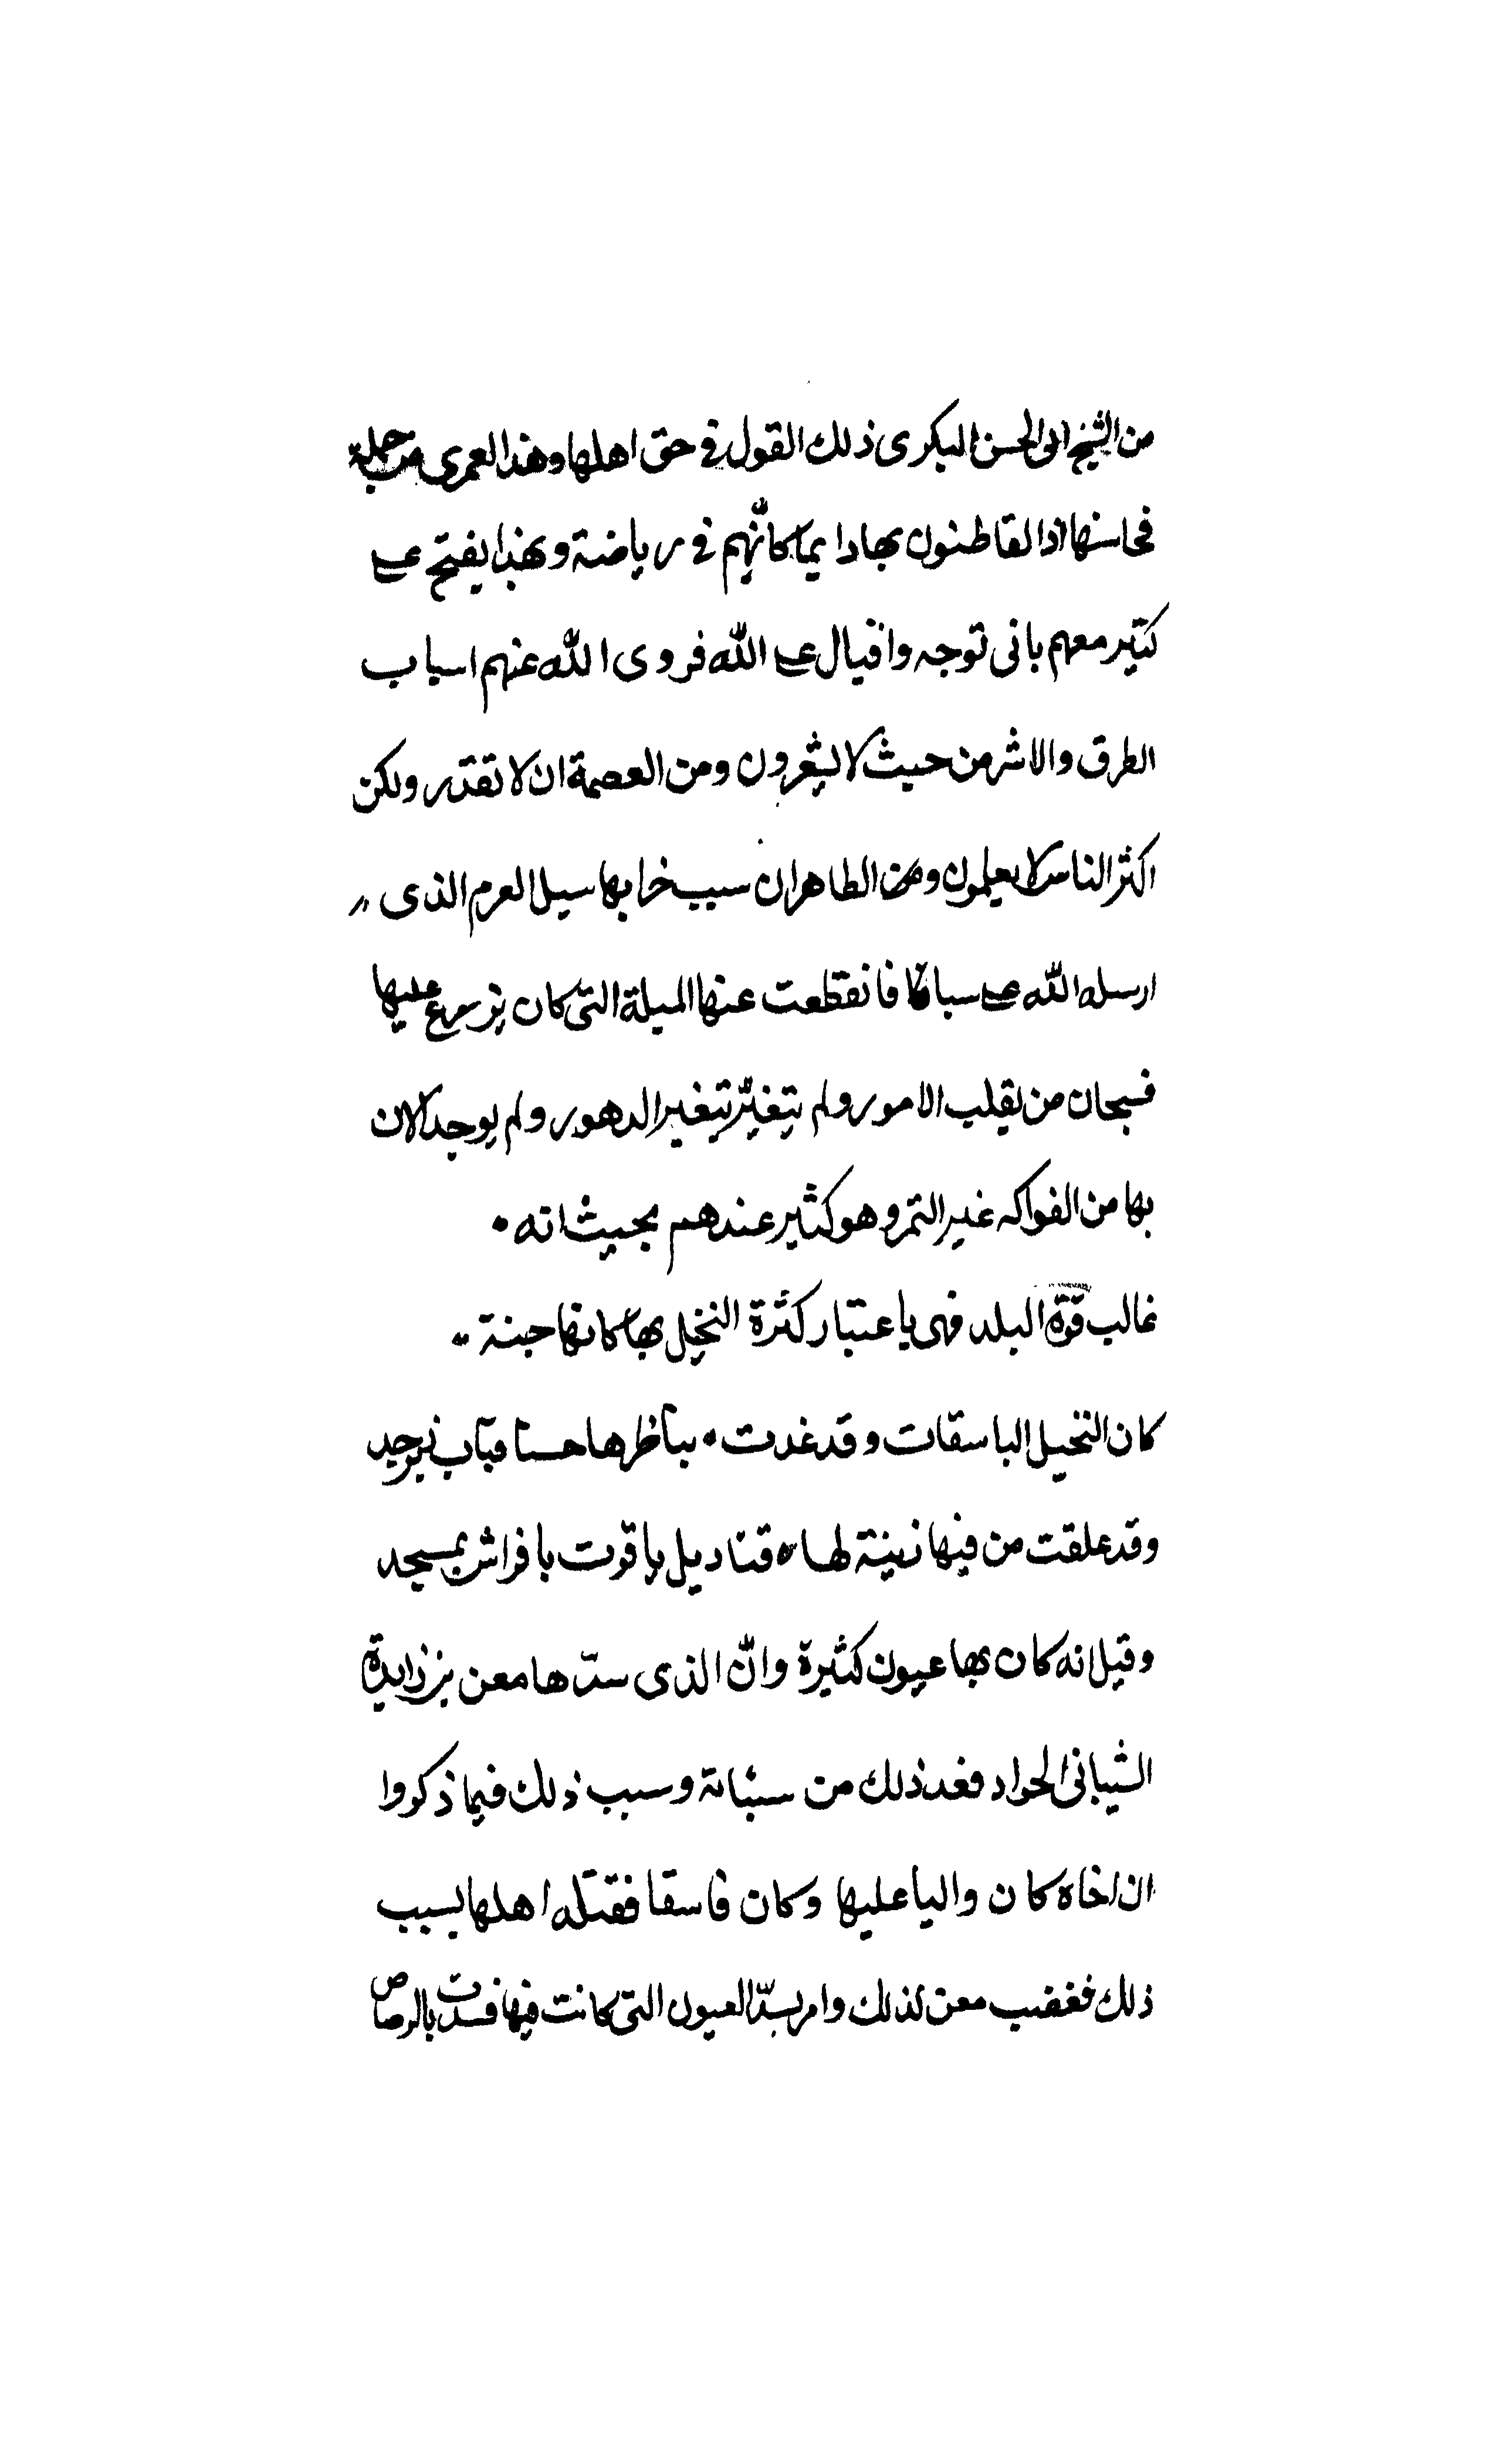 من الشيخ ابى الحسن البكرى ذلك القول فى حق اهلها وهذا لعمرى من جملة
محاسنها اذا لقاطنون بها دايما كانّهم فى رياضة وبهذا يفتح على
كثير معهم بانى توجه واقبال على الله فروى الله عنهم اسباب
الطرق والاشر من حيث لا يشعرون ومن العصمة ان لا تقدر ولكن
اكثر الناس لا يعلمون ومن الطاهر ان سبب خرابها سيل العرم الذى
ارسله الله على سبا فانقطعت عنها الميلة التى كان يزرع عليها
فسبحان من يقلب الامور ولم يتغيّر بتغير الدهور ولم يوجد الان
بها من الفواكه غير التمر وهو كثير عندهم بحيث انه
غالب قوة البلد فهى باعتبار كثرة النخيل بها كانها جنة
كان النخيل الباسقات وقد غدت • بناظرها حسنا قباب زبرجد
وقد علقت من فيها زينة لها ه قناديل ياقوت بافراش بمسجد
وقيل انه كان بها عيون كثيرة وانّ الذى سدّها معن بن زايدة
الشيبانى الجواد فعد ذلك من سيئاته وسبب ذلك فيما ذكروا
ان اخاه كان واليا عليها وكان فاسقا فقتله اهلها بسبب
ذلك فغضب معن لذلك وامر بسدّ العيون التى كانت فيها فسدت بالرصاص